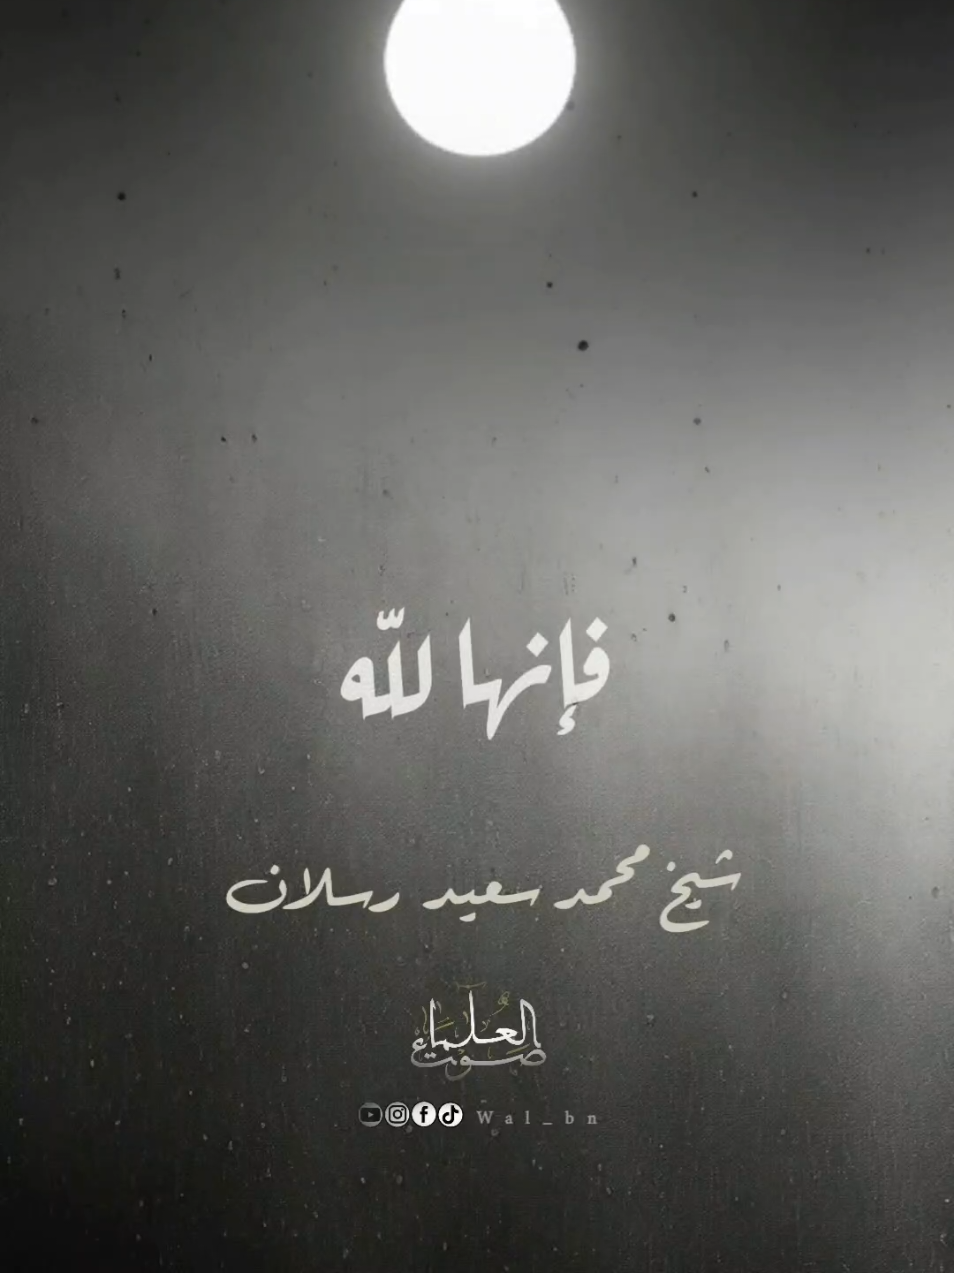 فإنها للّه
شيخ محمد سعيد رسلان
صوت العلماء
Wal_bn